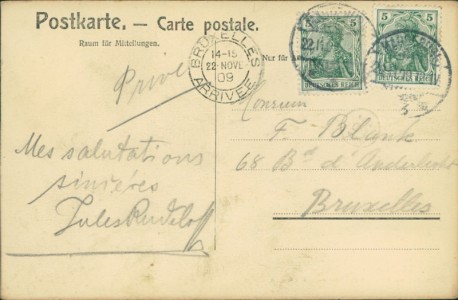 Postkarte. — Carte postale.
Raum für Mitteilungen.
Nur für
BRUXELLES
14-15
22 NOVE
09
ARRIVÉE
5 5
DEUTSCHES REICH
5 5
DEUTSCHES REICH
Privé
Mes salutations
sincéres
Jules Rudeloff
Monsieur
F.
68 Bd d'Anderlecht
Bruxelles